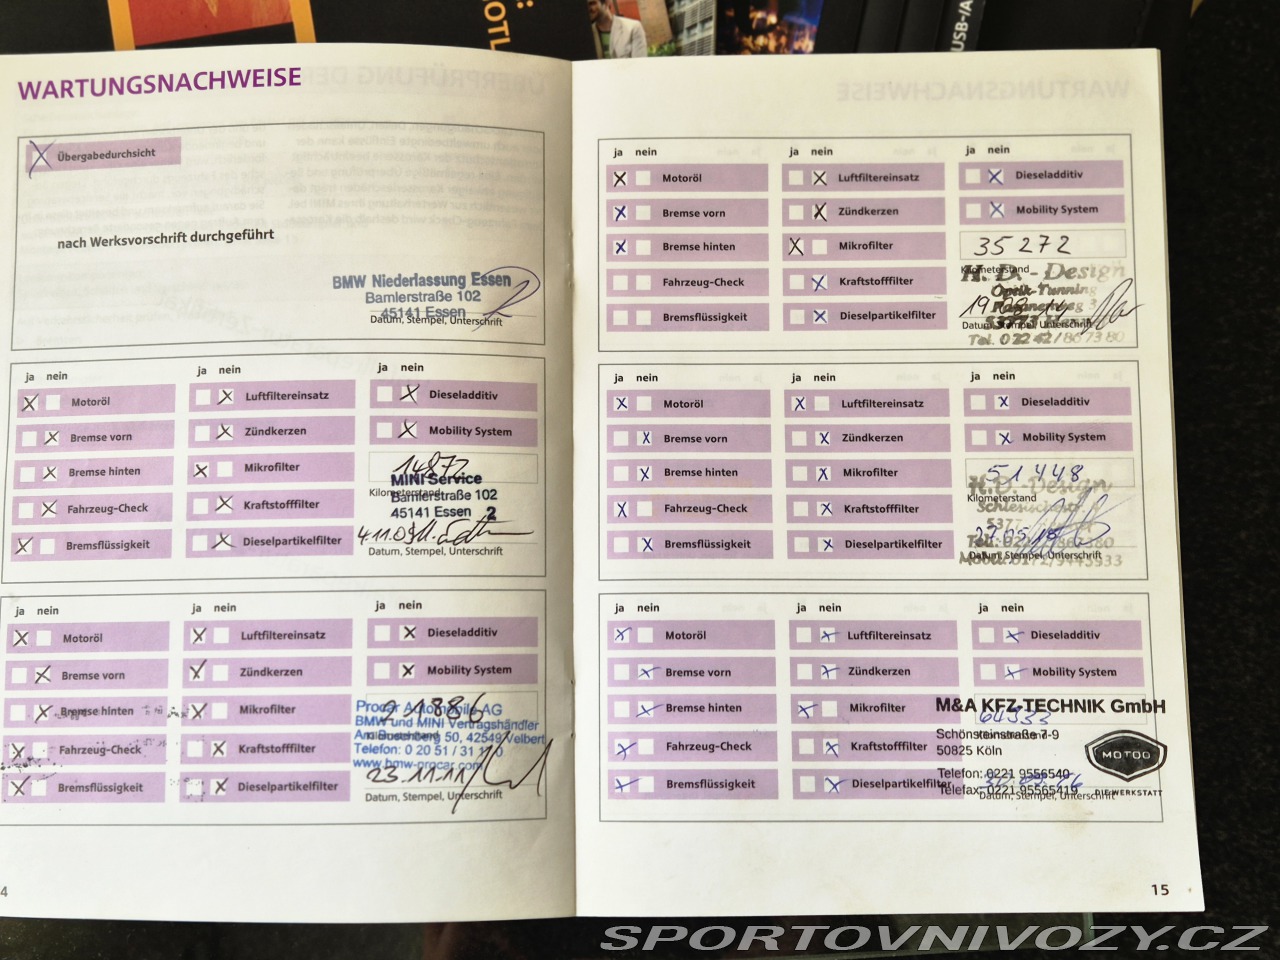 USB-/A
WARTUNGSNACHWEISE
Übergabedurchsicht
nach Werksvorschrift durchgeführt
BMW Niederlassung Essen
Bamlerstraße 102
45141 Essen
Datum, Stempel, Unterschrift
ja nein
Motoröl
Bremse vorn
Bremse hinten
Fahrzeug-Check
Bremsflüssigkeit
ja nein
Luftfiltereinsatz
Zündkerzen
Mikrofilter
Kraftstofffilter
Dieselpartikelfilter
ja nein
Dieseladditiv
Mobility System
14872
MINI Service
Kilometerstand
Bamlerstraße 102
45141 Essen 2
Datum, Stempel, Unterschrift
ja nein
Motoröl
Bremse vorn
Bremse hinten
Fahrzeug-Check
Bremsflüssigkeit
ja nein
Luftfiltereinsatz
Zündkerzen
Mikrofilter
Kraftstofffilter
Dieselpartikelfilter
ja nein
Dieseladditiv
Mobility System
21886
Procar Automobile AG
BMW und MINI Vertragshändler
Am Buschberg 50, 42549 Velbert
Telefon: 0 20 51 / 31
www.bmw-procar.com
23.11.11
Datum, Stempel, Unterschrift
4
ja nein
Motoröl
Bremse vorn
Bremse hinten
Fahrzeug-Check
Bremsflüssigkeit
ja nein
Luftfiltereinsatz
Zündkerzen
Mikrofilter
Kraftstofffilter
Dieselpartikelfilter
ja nein
Dieseladditiv
Mobility System
35272
Kilometerstand
H. D. - Design
Optik-Tunning
Datum, Stempel, Unterschrift
Tel. 02242/867380
ja nein
Motoröl
Bremse vorn
Bremse hinten
Fahrzeug-Check
Bremsflüssigkeit
ja nein
Luftfiltereinsatz
Zündkerzen
Mikrofilter
Kraftstofffilter
Dieselpartikelfilter
ja nein
Dieseladditiv
Mobility System
51448
H.D.-Design
Kilometerstand
Datum, Stempel, Unterschrift
Mobil: 0172/9445933
ja nein
Motoröl
Bremse vorn
Bremse hinten
Fahrzeug-Check
Bremsflüssigkeit
ja nein
Luftfiltereinsatz
Zündkerzen
Mikrofilter
Kraftstofffilter
Dieselpartikelfilter
ja nein
Dieseladditiv
Mobility System
M&A KFZ-TECHNIK GmbH
Schönsteinstraße 7-9
50825 Köln
MOTOO
Telefon: 0221 9556540
Telefax: 0221 95565419
DIE WERKSTATT
Datum, Stempel, Unterschrift
15
SPORTOVNIVOZY.CZ